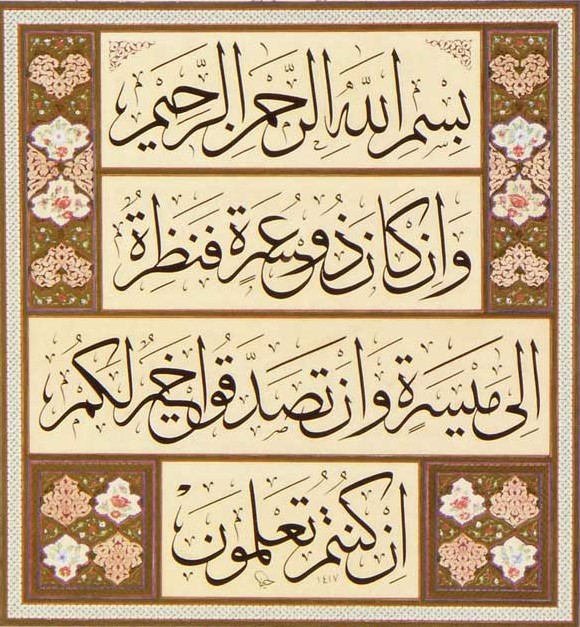 بِسْمِ اللهِ الرَّحْمٰنِ الرَّحِيمِ
وَاِنْ كَانَ ذُو عُسْرَةٍ فَنَظِرَةٌ
اِلٰى مَيْسَرَةٍ وَاَنْ تَصَدَّقُوا خَيْرٌ لَكُمْ
اِنْ كُنْتُمْ تَعْلَمُونَ
١٤١٧